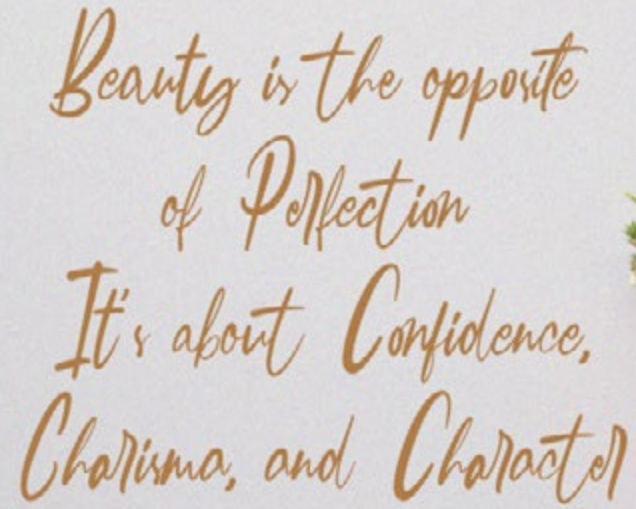 Beauty is the opposite
of Perfection
It's about Confidence,
Charisma, and Character